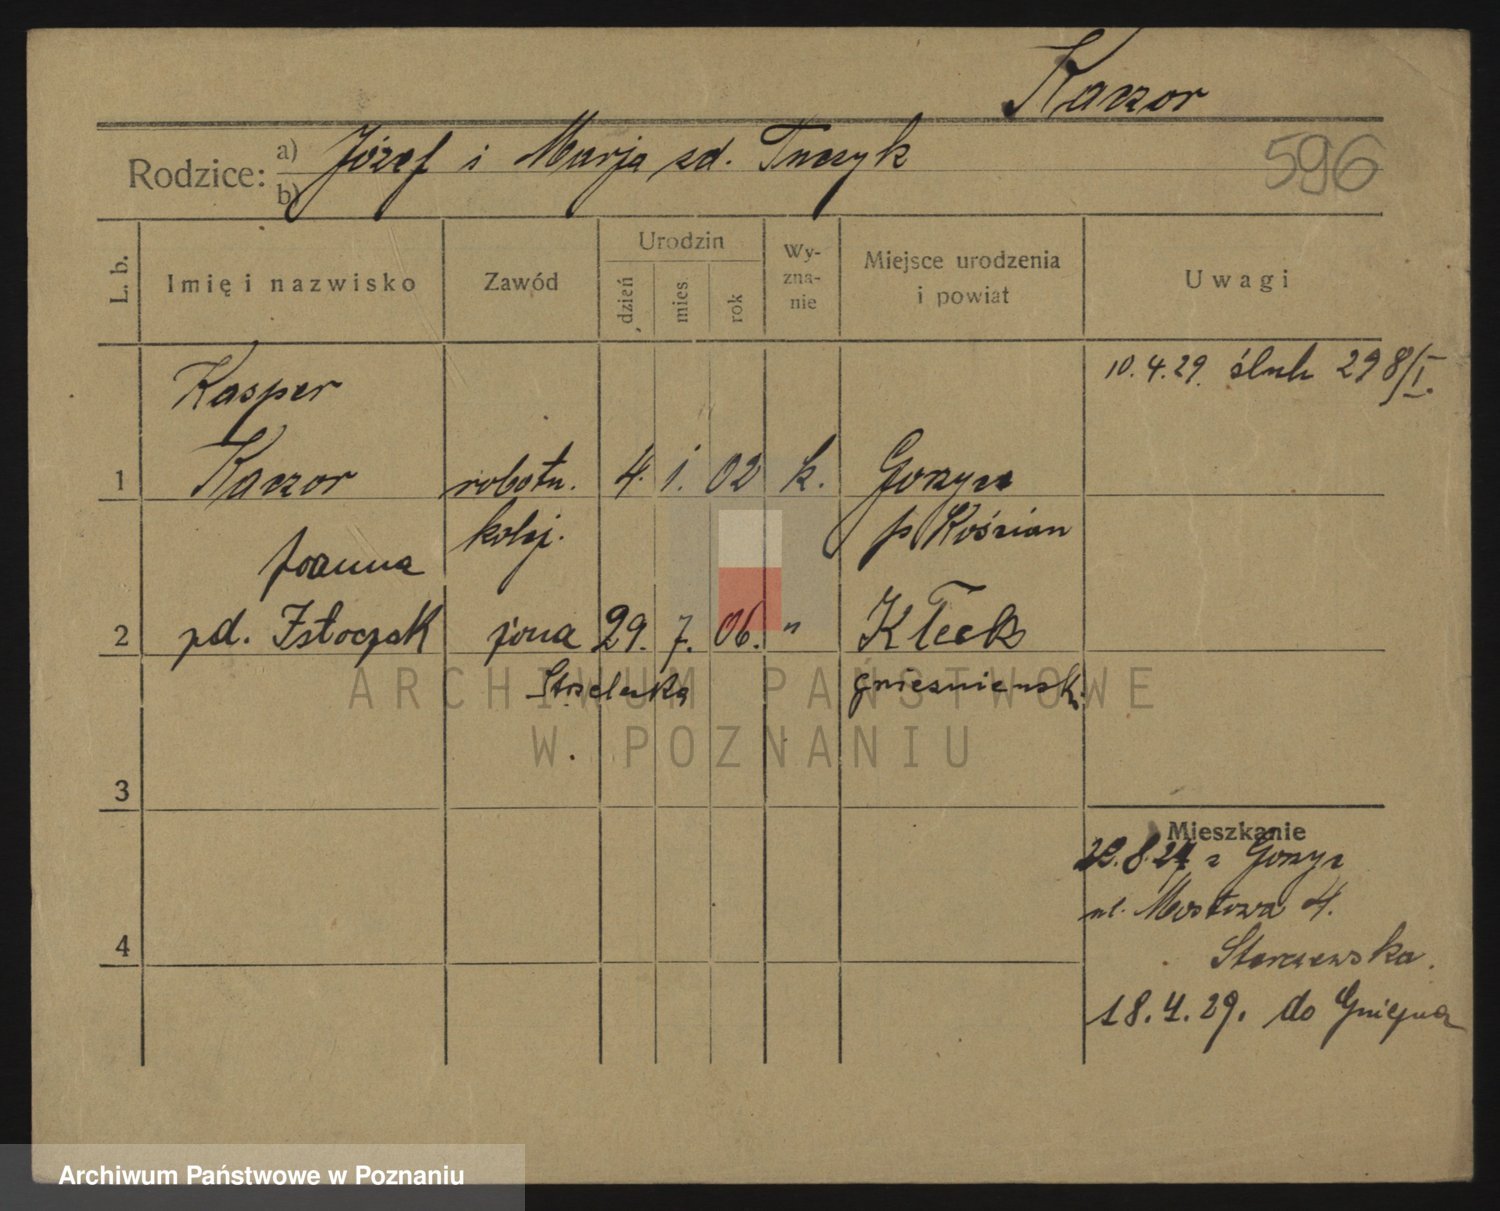 Kaczor
Rodzice: a) Józef i Marja zd. Tuczyk
b)
596
L. b. Imię i nazwisko Zawód Urodzin dzień mies rok Wy-zna-nie Miejsce urodzenia i powiat Uwagi
Kasper 10.4.29. ślub 298/I.
1 Kaczor robotn. 4. 1. 02 k. Gorzyce
kolej. p Kościan
Joanna
2 zd. Istoczak żona 29. 7. 06. " Kłecko
Strzelecka gniezniensk.
ARCHIWUM PAŃSTWOWE
W POZNANIU
3
Mieszkanie
8.27 z Gorzyc
ul. Mostowa 4.
4 Starczewska.
18.4.29. do Gniezna
Archiwum Państwowe w Poznaniu